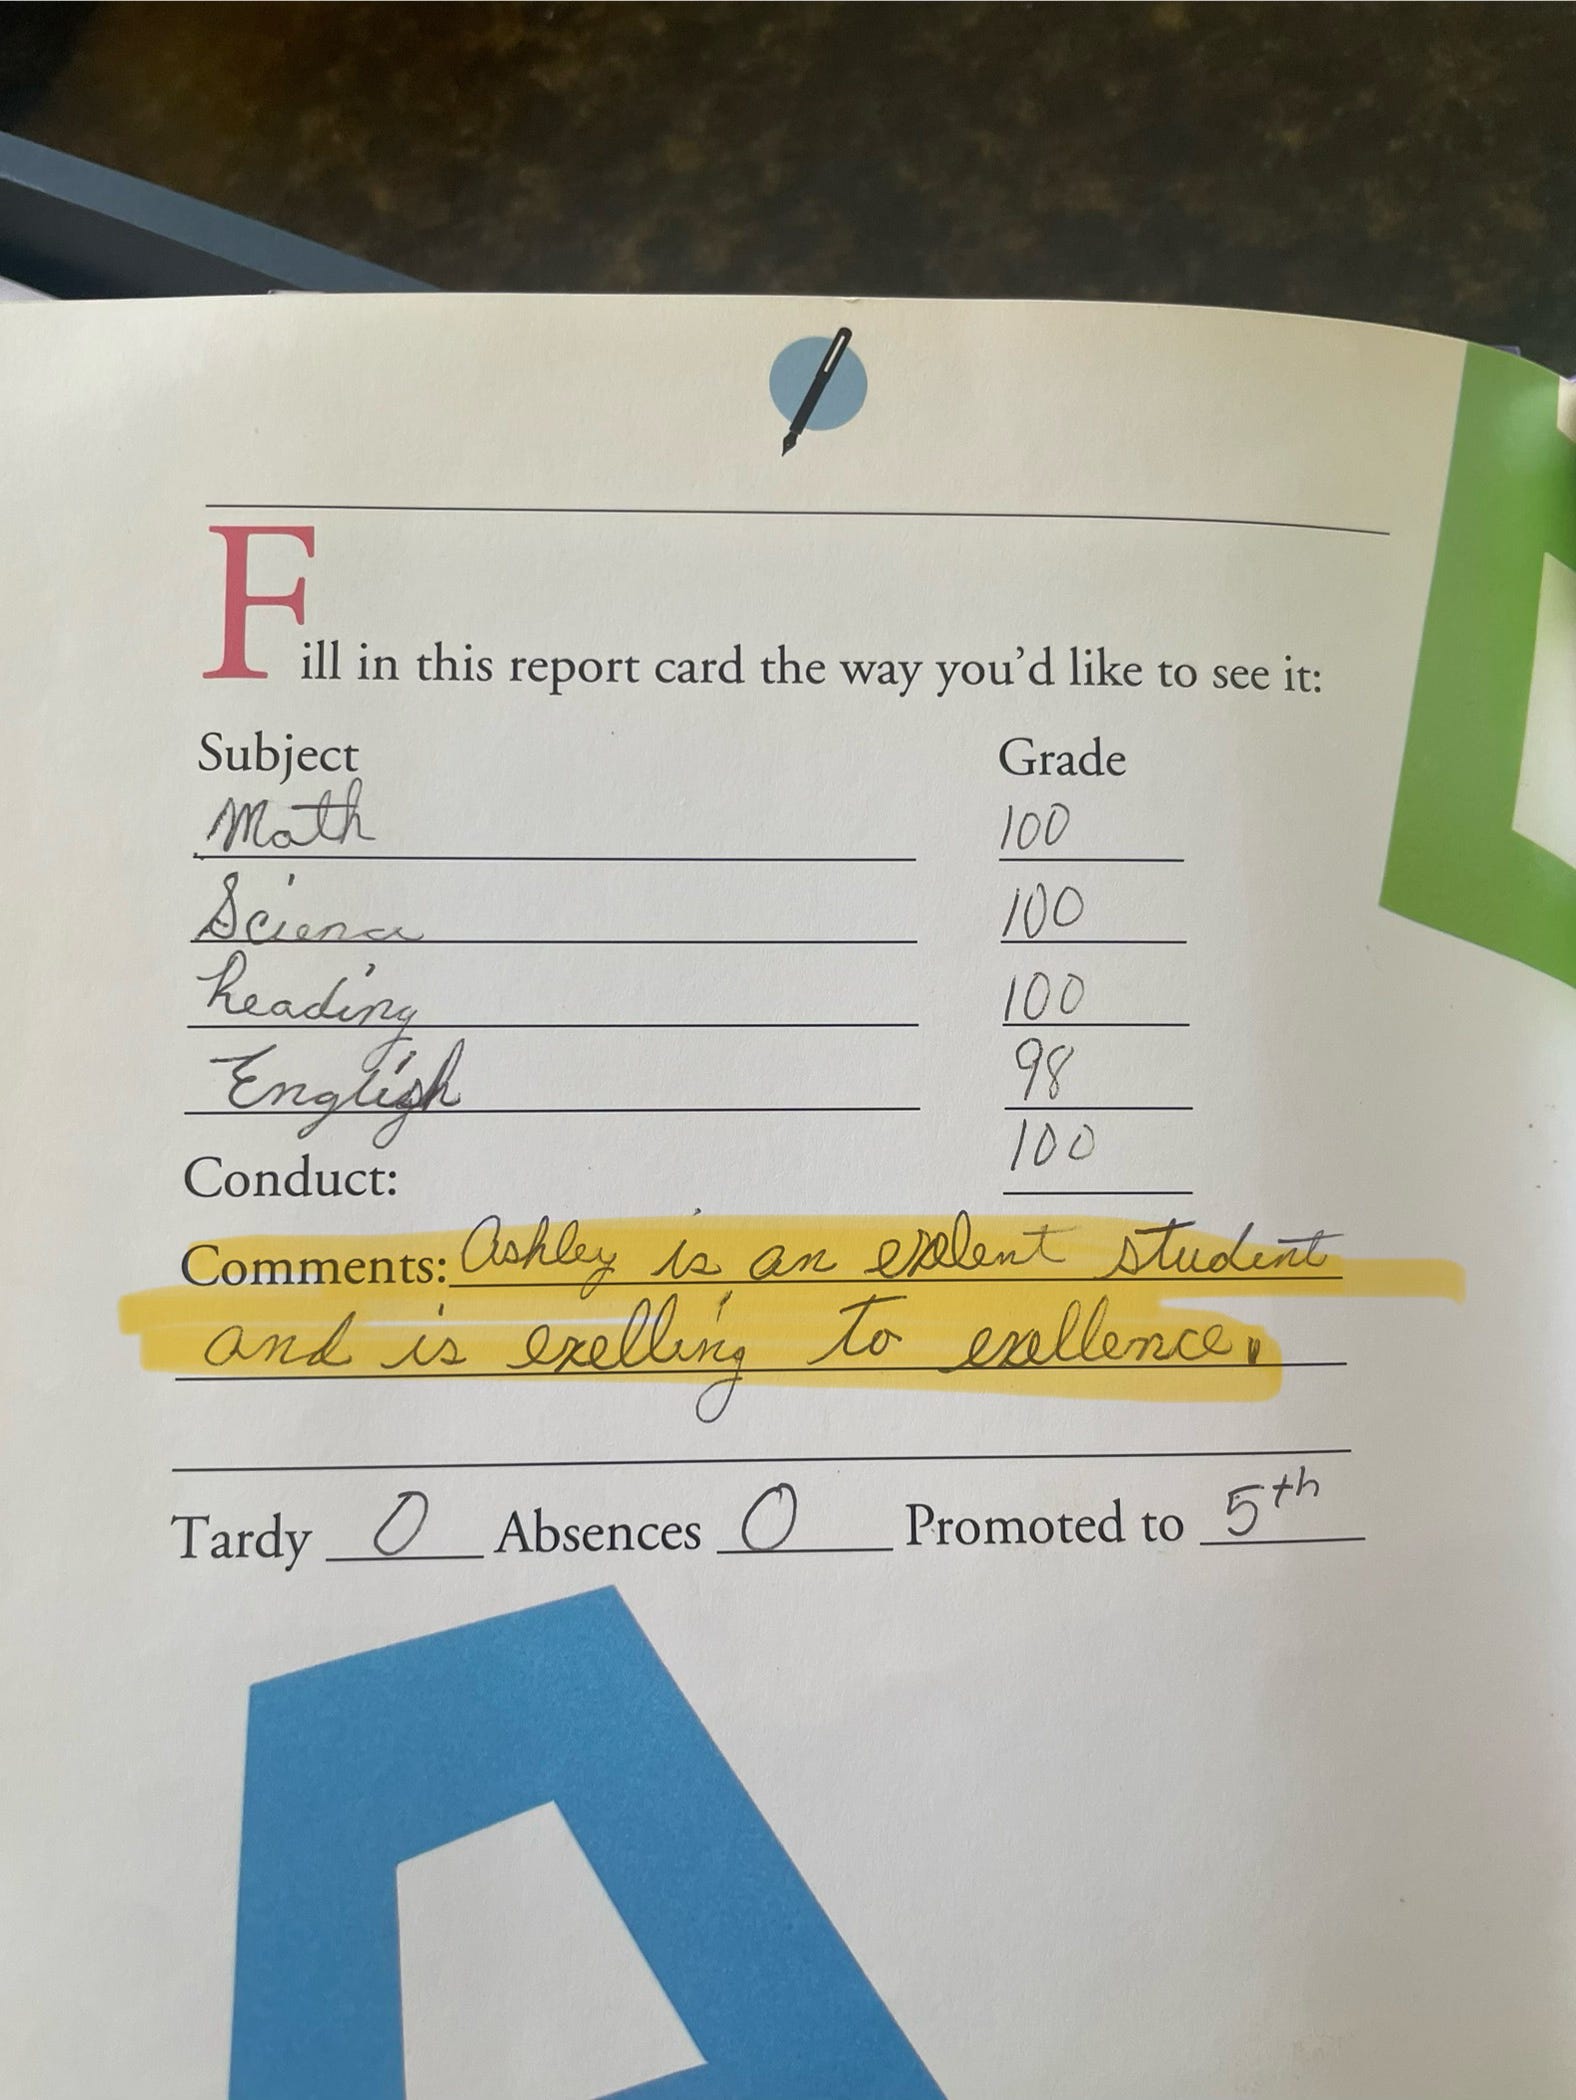 Fill in this report card the way you'd like to see it:
Subject Grade
Math 100
Science 100
Reading 100
English 98
Conduct: 100
Comments: Ashley is an exelent student
and is exelling to exellence.
Tardy 0 Absences 0 Promoted to 5th